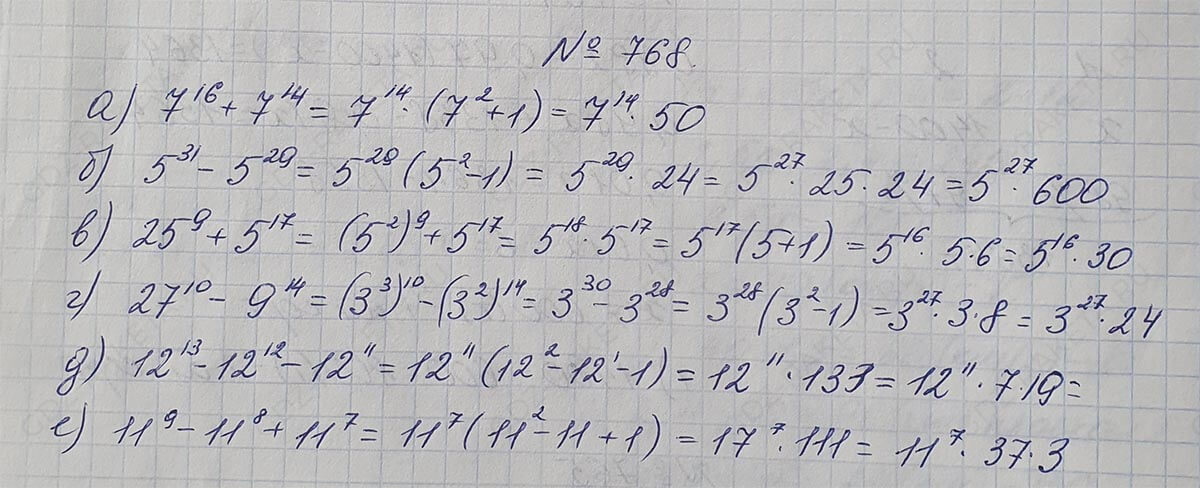 № 768.
а) 7¹⁶ + 7¹⁴ = 7¹⁴ · (7² + 1) = 7¹⁴ · 50
б) 5³¹ - 5²⁹ = 5²⁹ (5² - 1) = 5²⁹ · 24 = 5²⁷ · 25 · 24 = 5²⁷ · 600
в) 25⁹ + 5¹⁷ = (5²)⁹ + 5¹⁷ = 5¹⁸ · 5¹⁷ = 5¹⁷ (5 + 1) = 5¹⁶ · 5 · 6 = 5¹⁶ · 30
г) 27¹⁰ - 9¹⁴ = (3³)¹⁰ - (3²)¹⁴ = 3³⁰ - 3²⁸ = 3²⁸ (3² - 1) = 3²⁷ · 3 · 8 = 3²⁷ · 24
д) 12¹³ - 12¹² - 12¹¹ = 12¹¹ (12² - 12¹ - 1) = 12¹¹ · 133 = 12¹¹ · 7 · 19 =
е) 11⁹ - 11⁸ + 11⁷ = 11⁷ (11² - 11 + 1) = 17⁷ · 111 = 11⁷ · 37 · 3